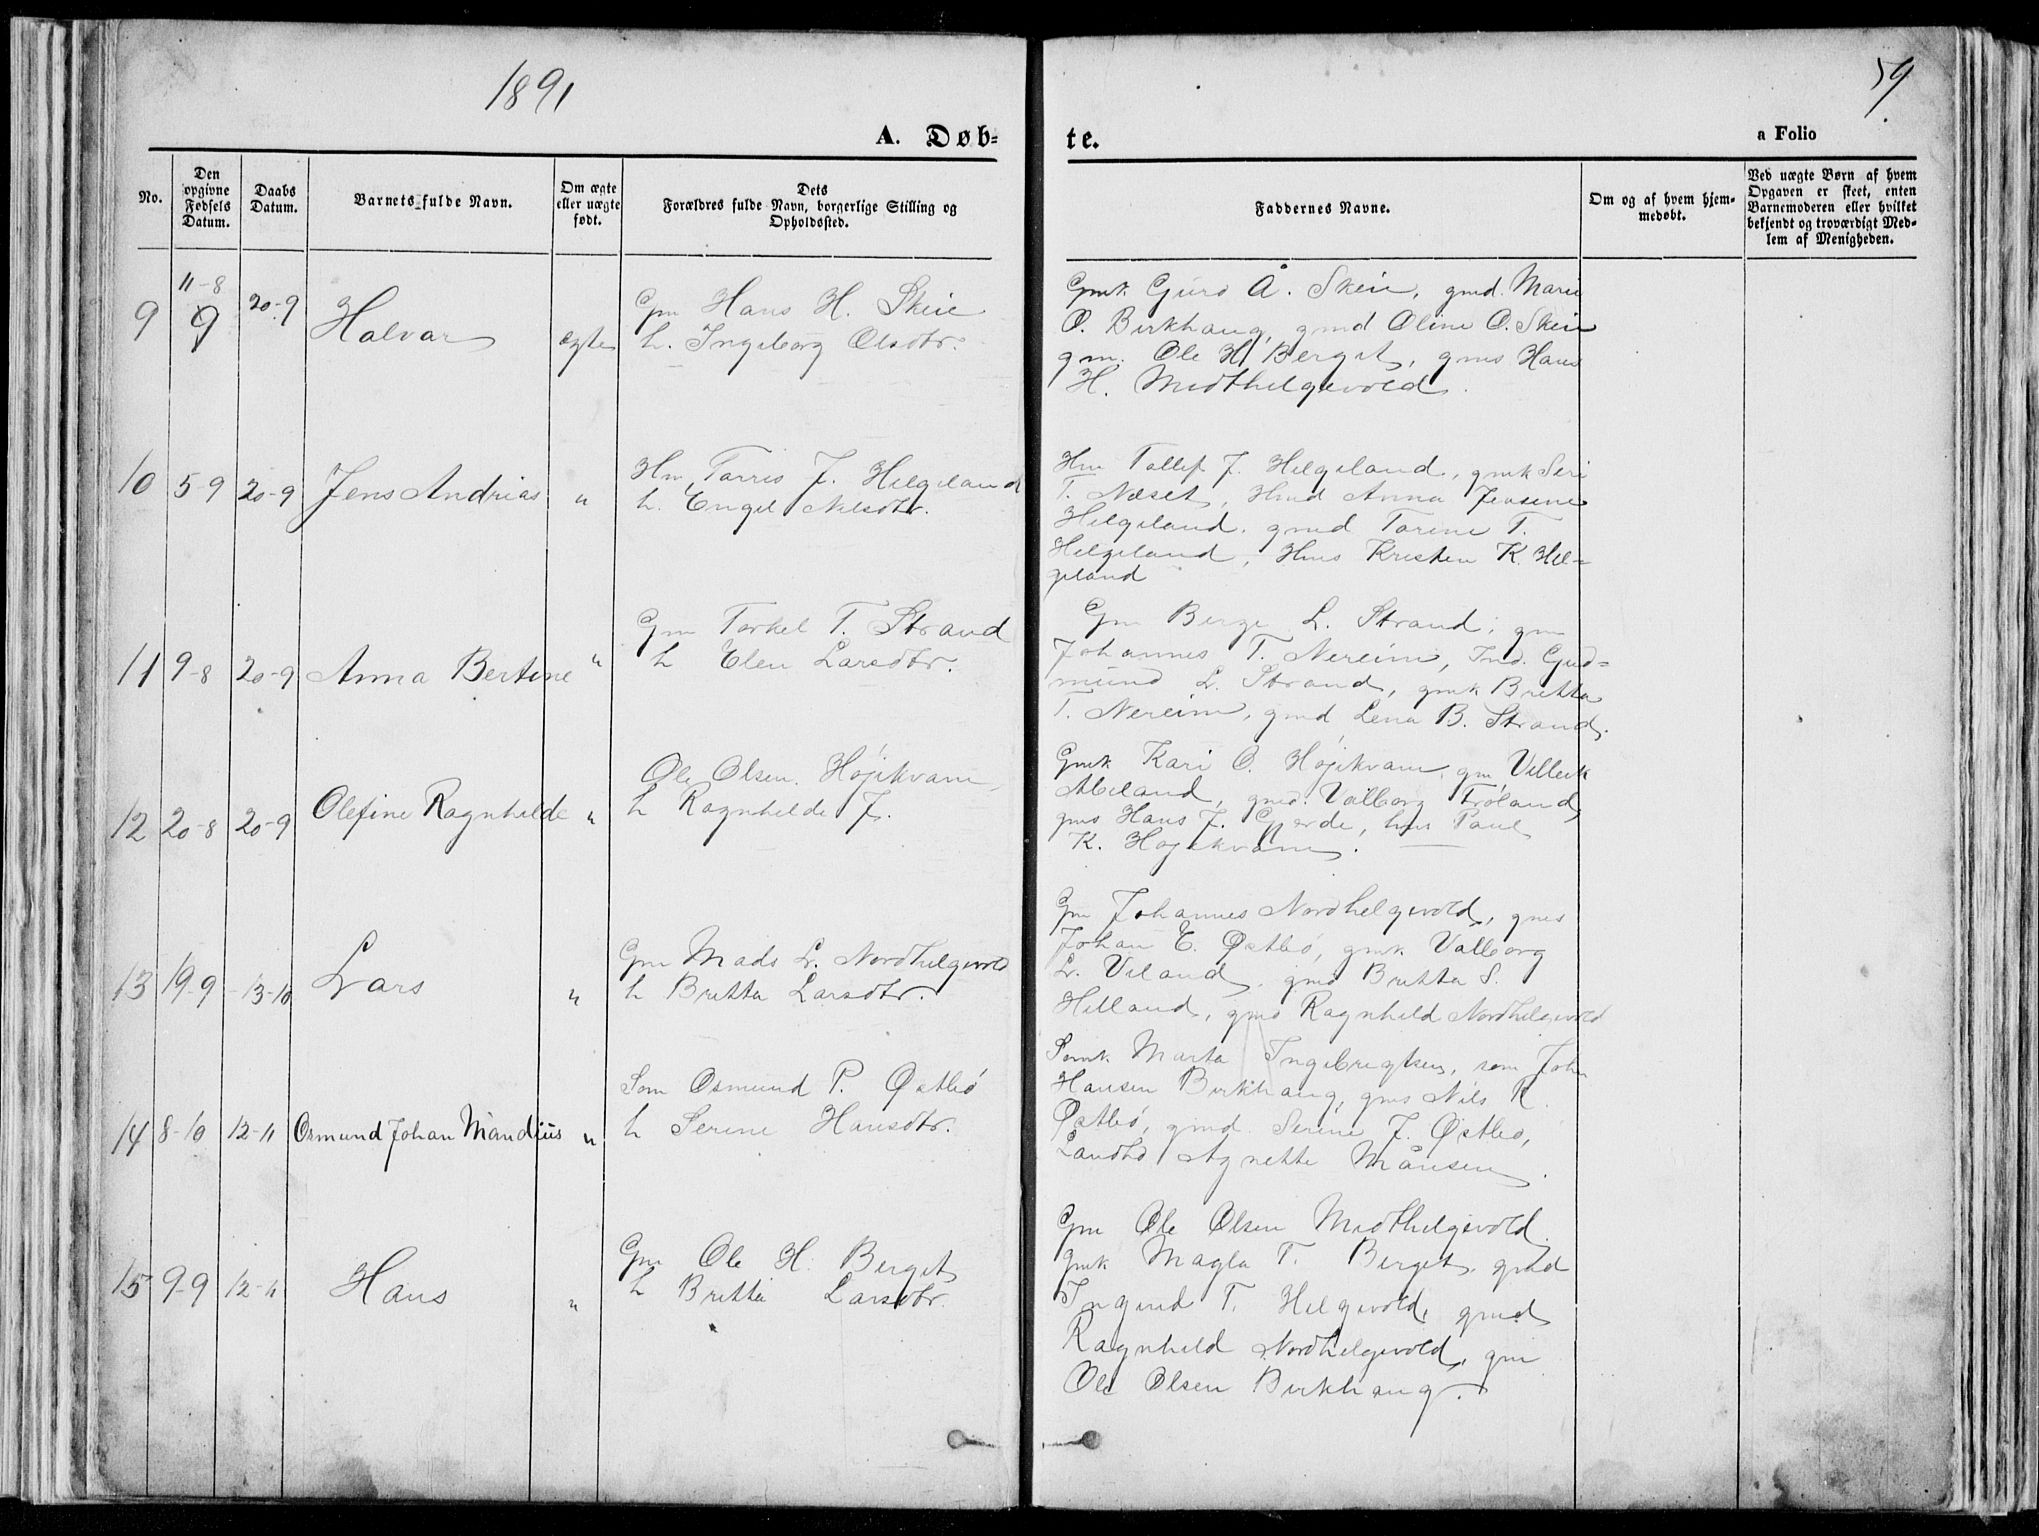 1891
59.
A. Døb-
te.
a Folio
No.
Den
opgivne
Fødsels
Datum.
Daabs
Datum.
Barnets fulde Navn.
Om ægte
eller uægte
født.
Dets
Forældres fulde Navn, borgerlige Stilling og
Opholdssted.
Faddernes Navne.
Om og af hvem hjem-
medøbt.
Ved uægte Børn af hvem
Opgaven er skeet, enten
Barnemoderen eller hvilket
bekjendt og troværdigt Med-
lem af Menigheden.
11-8
9 9 20-9 Halvar ægte
Gm Hans H. Skeie
h. Ingeborg Olsdtr.
Gmk Guro Å. Skeie, gmd. Mari
O. Birkhaug, gmd Oline O. Skeie
gm. Ole H. Berget, gms Hans
H. Midthelgevold.
10 5-9 20-9 Jens Andrias "
Hm Tarris J. Helgeland
h. Engel Nilsdtr.
Hm Tollef J. Helgeland, gmk Seri
T. Næset, Hmd Anna Jensine
Helgeland, gmd Torine T.
Helgeland, Hms Kristen K. Hel-
geland
11 9-8 20-9 Anna Bertine "
Gm Torkel T. Strand
h Elen Larsdtr.
Gm Berge L. Strand, gm
Johannes T. Nereim, Ind. Gud-
mund L. Strand, gmk Britta
T. Nereim, gmd Lena B. Strand.
12 20-8 20-9 Olefine Ragnhilde "
Ole Olsen Høiekvam
h Ragnhilde J.
Gmk Kari O. Høiekvam, gm Villeik
Meland, gmd. Valborg Frøland,
gms Hans J. Gjerde, hms Paul
K. Høiekvam.
13 19-9 13-10 Lars "
Gm Mads L. Nordhelgevold
h Britta Larsdtr.
Gm Johannes Nordhelgevold, gms
Johan E. Østbø, gmk Valborg
L. Veland, gmd Britta S.
Helland, gmd Ragnhild Nordhelgevold
14 8-10 12-11 Osmund Johan Mandius "
Søm Osmund P. Østbø
h Serine Hansdtr.
Sømk Marta Ingebregtsen, søm John
Hansen Birkhaug, gms Nils R.
Østbø, gmd. Serine J. Østbø,
Agnette Månsen.
15 9-9 12-11 Hans "
Gm Ole H. Berget
h Britta Larsdtr.
Gm Ole Olsen Midthelgevold.
gmk Magla T. Berget, gmd
Ingerid T. Helgevold, gmd
Ragnhild Nordhelgevold, gm
Ole Olsen Birkhaug.